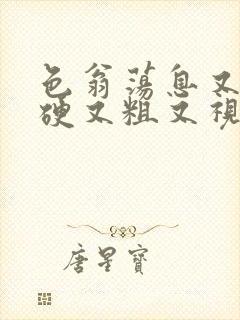 色翁荡息又
硬又粗又視
唐星寶